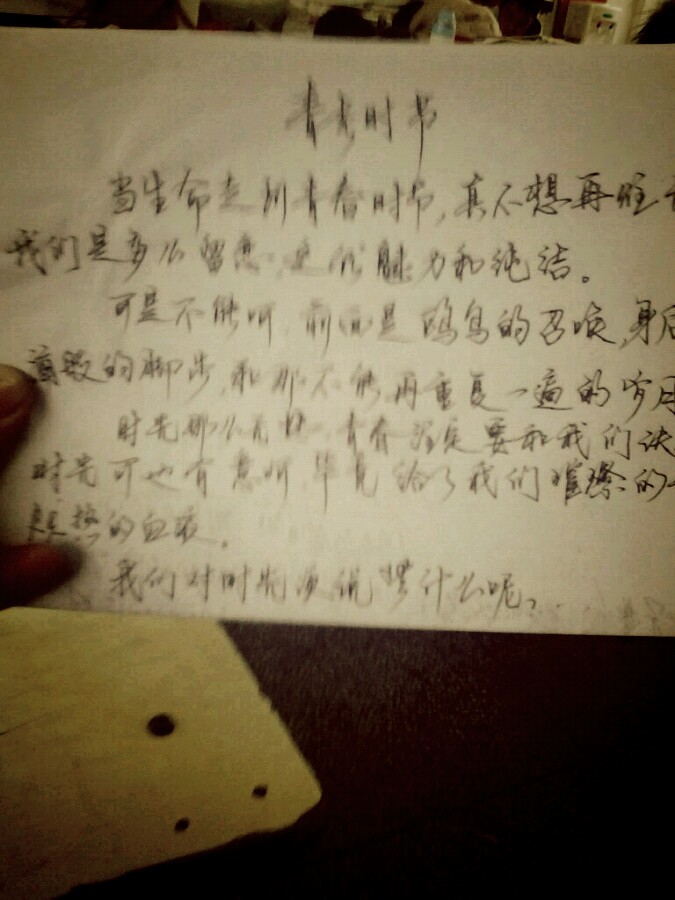 青春时节
当生命走到青春时节,真不想再往
我们是多么留恋,这份魅力和纯洁。
可是不能呵,前面是鸥鸟的召唤,身后
的脚步,和那不能再重复一遍的岁月
时光那么无情,青春注定要和我们诀
时光可也有意呵毕竟给了我们璀璨的
热的血液。
我们对时光该说些什么呢?